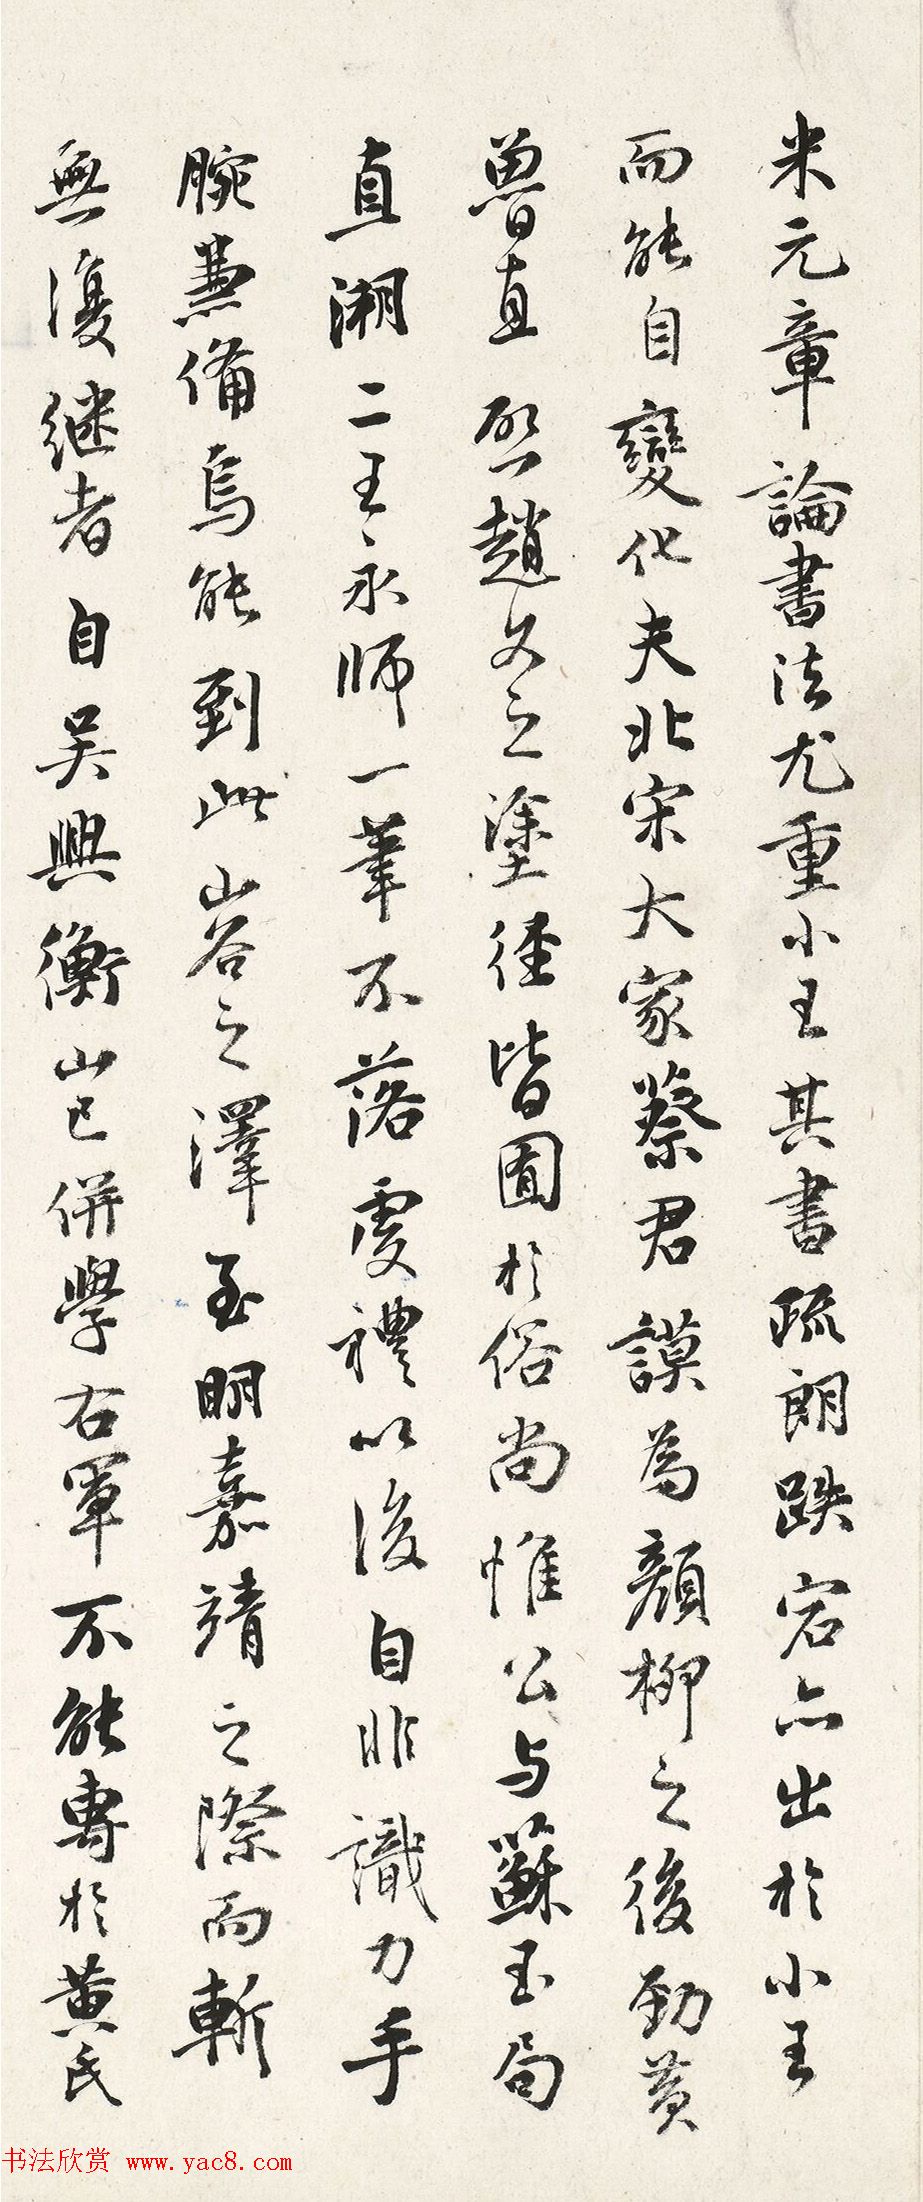 米元章論書法尤重小王其書疏朗跌宕亦出於小王
而能自變化夫北宋大家蔡君謨為顏柳之後勁黃
魯直啟趙文之塗徑皆囿於俗尚惟公與蘇玉局
直溯二王永師一筆不落虔禮以後自非識力手
腕兼備烏能到此山谷之澤至明嘉靖之際而斬
無復繼者自吳興衡山已併學右軍不能專於黃氏
书法欣赏 www.yac8.com